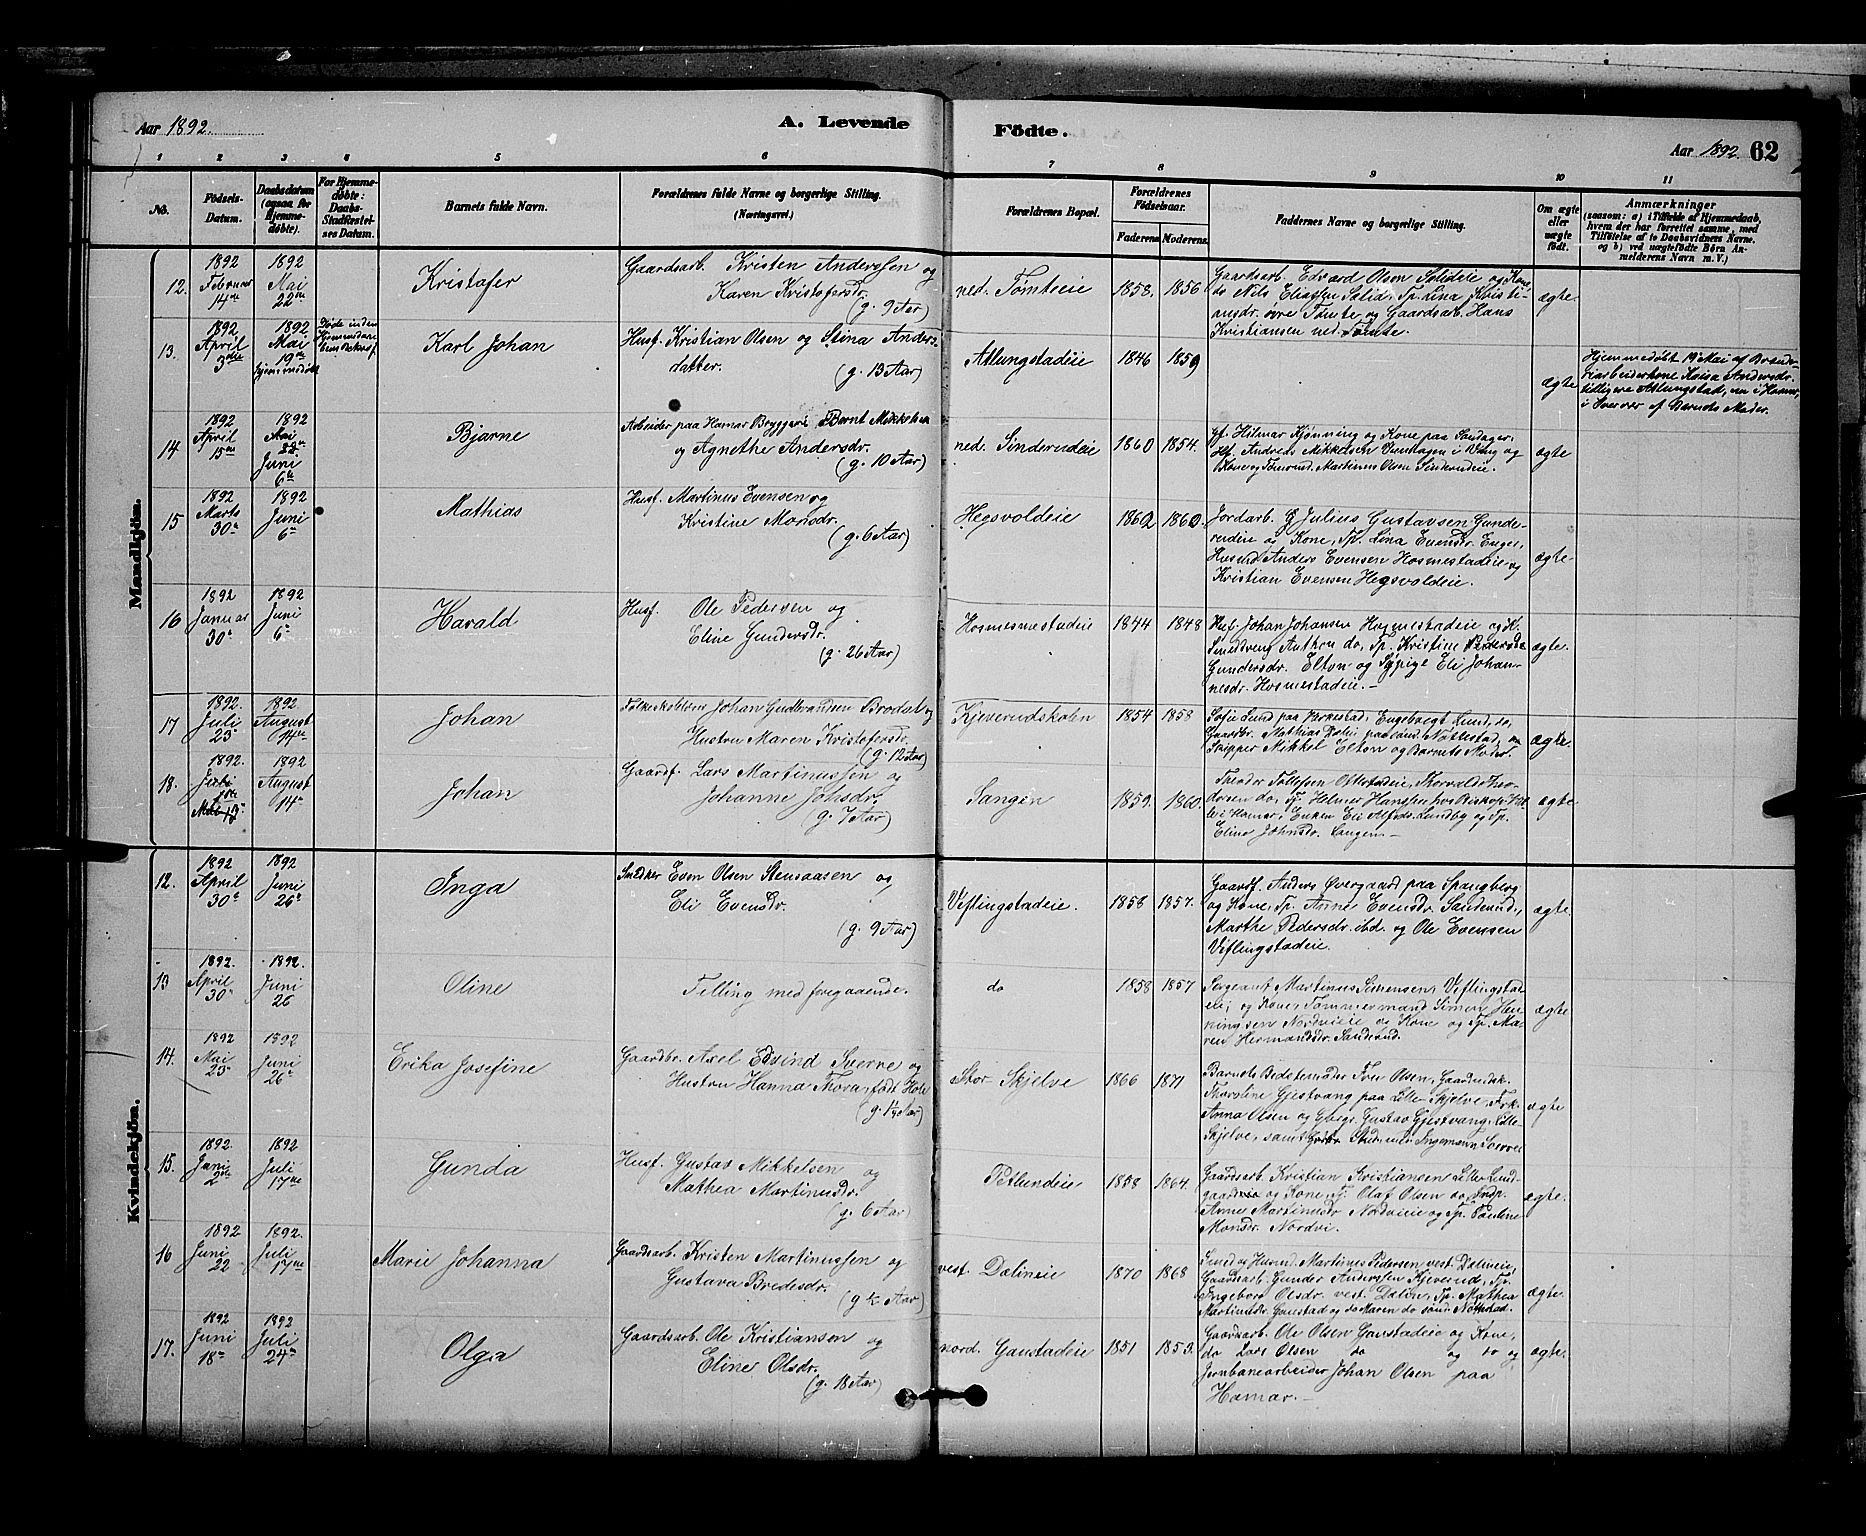 Aar 1892. A. Levende Födte. Aar 1892. 62
1 2 3 4 5 6 7 8 9 10 11
No.
Födsels-Datum.
Daabsdatum (ogsaa for Hjemmedøbte).
For Hjemmedøbte: Daabs-Stadfæstelses Datum.
Barnets fulde Navn.
Forældrenes fulde Navne og borgerlige Stilling. (Næringsvei.)
Forældrenes Bopæl.
Forældrenes Födselsaar.
Faderens Moderens.
Faddernes Navne og borgerlige Stilling.
Om ægte eller uægte født.
Anmærkninger
(saasom: a) i Tilfælde af Hjemmedaab, hvem der har forrettet samme, med Tilføielse af to Daabsvidners Navne, og b) ved uægtefødte Börn Anmelderens Navn m. V.)
Mandkjön.
12. 1892 Februar 14de
1892 Mai 22de
Kristofer
Gaardsarb. Kristen Anderssen og
Karen Kristofersdr.
(g. 9 Aar)
ned. Tømteeie 1858. 1856
Gaardsarb. Edvard Olsen Solideie og Kone,
do Nils Eliassen Solid, Tp. Lina Kristi-
ansdr. øvre Tømte og Gaardsarb. Hans
Kristiansen ned. Tømte.
ægte
13. 1892 April 3die
1892 Mai 19de hjemmedøbt
Døde inden
Karl Johan
Husf. Kristian Olsen og Stina Anders-
datter.
(g. 13 Aar)
Atlungstadeie 1846 1859
ægte
Hjemmedøbt 19 Mai af Brænde-
riarbeiderkone Kaisa Andersdr.
tidligere Atlungstad, nu i Hamar,
i Nærvær af Barnets Moder.
14 1892 April 15de
1892 Mai 22de Juni 6te
Bjarne
Arbeider paa Hamar Bryggeri Bernt Mikkelsen
og Agnethe Andersdr.
(g. 10 Aar)
ned. Sinderudeie 1860 1854.
Gf. Hilmar Kjønning og Kone paa Sandager,
Hf. Andreas Mikkelsen i Vang og
Kone og Martinus Olsen Sinderudeie.
ægte
15 1892 Marts 30te
1892 Juni 6te
Mathias
Husf. Martinus Evensen og
Kristine Monsdr.
(g. 6 Aar)
Hegsvoldeie 1862 1860.
Jordarb. Julius Gustavsen Gunde-
rudeie og Kone, Tp. Lina Evensdr. Enger,
Husmd. Anders Evensen Hosmestadeie og
Kristian Evensen Hegsvoldeie.
ægte
16 1892 Januar 30te
1892 Juni 6te
Harald
Husf. Ole Pedersen og
Eline Gundersdr.
(g. 26 Aar)
Hosmesmestadeie 1844 1848
Husf. Johan Johansen Hosmestadeie og K.
Smeddreng Anthon do, Tp. Kristine
Gundersdr. Elton og Sypige Eli Johan-
nesdr. Hosmestadeie.-
ægte.
17 1892. Juli 23de
1892. August 14de
Johan
Folkeskolelærer Johan Gudbrandsen Brodal og
Hustru Maren Kristofersdr.
(g. 12 Aar)
Kjeverudskolen 1854 1858
Sofie Lund paa Børkestad, Engebregt Lund, do,
Gaardbr. Mathias Nøttestad,
Skipper Mikkel Elton og Barnets Moder.
ægte.
18. 1892. Juli
1892 August 14de
Johan
Gaardf. Lars Martinussen og
Johanne Johsdr.
(g. 7 Aar)
Sangen 1859. 1860.
Theodor Tollefsen Ottestadeie, Thorvald Theo-
dorsen do, Tp. Helmer Hanssen hos Biskop Hil-
le i Hamar, Enken Eli Alfsdr. Lundby og Tp.
Eline Johnsdr. Sangen.-
ægte
Kvindekjön.
12. 1892 April 30te
1892 Juni 26de
Inga
Snedker Even Olsen Stensaasen og
Eli Evensdr.
(g. 9 Aar)
Veflingstadeie. 1858 1857.
Gaardf. Anders Øvergaard paa Spangberg
og Kone, Tp. Anne Evensdr. Sanderud,
Marthe Pedersdr. ibd. og Ole Evensen
Veflingstadeie.
ægte
13 1892. April 30te
1892. Juni 26
Oline
Tvilling med foregaaende.
do 1858 1857
Sergeant Martinus Simensen, Veflingstad-
eie, og Kone, Tømmermand Simen Hen-
ningsen Nordvieie og Kone og Tp. Ma-
ren Hermandsdr. Sanderud.
ægte
14. 1892 Mai 23de
1892 Juni 26de
Erika Josefine
Gaardbr. Axel Edvind Sverre og
Hustru Hanna Thora, født Hoel
(g. 1½ Aar)
Stor Skjelve 1866 1871
Barnets Bedstemoder Fru Olsen, Gaardmdsk.
Thoroline Gjestvang paa Lille-Skjelve, Frk.
Anna Olsen og Gustav Gjestvang, Lille-
Skjelve, samt Ingemann Sverre
ægte
15. 1892 Juni 2den
1892 Juli 17de
Gunda
Husf. Gustav Mikkelsen og
Mathea Martinusdr.
(g. 6 Aar)
Petlundeie 1858 1864.
Gaardsarb. Kristian Kristiansen Lille Lund-
gaard og Kone, Tj. Olaf Olsen do, Indp.
Anne Martinusdr Nordvieie og Tp. Pauline
Monsdr. Nordvi.
ægte.
16 1892 Juni 22
1892. Juli 17de
Marie Johanna
Gaardsarb. Kristen Martinussen og
Gustava Bredesdr.
(g ½ Aar)
vest. Dælineie 1870 1868
Smed og Husmd. Martinus Pedersen vest. Dælineie,
Gaardsarb. Gunder Anderssen Kjeverud, Tp.
Ingeborg Olsdr. vest. Dælin, Tp. Mathea
Martinusdr. Gaustad og do Maren do sønd. Nøttestad.
ægte.
17. 1892 Juni 18de
1892 Juli 24de
Olga
Gaardsarb. Ole Kristiansen og
Eline Olsdr.
(g. 18 Aar)
nord. Gaustadeie 1851 1853.
Gaardsarb. Ole Olsen Gaustadeie og Kone,
do Lars Olsen do og do og
Jernbanearbeider Johan Olsen paa
Hamar.-
ægte.